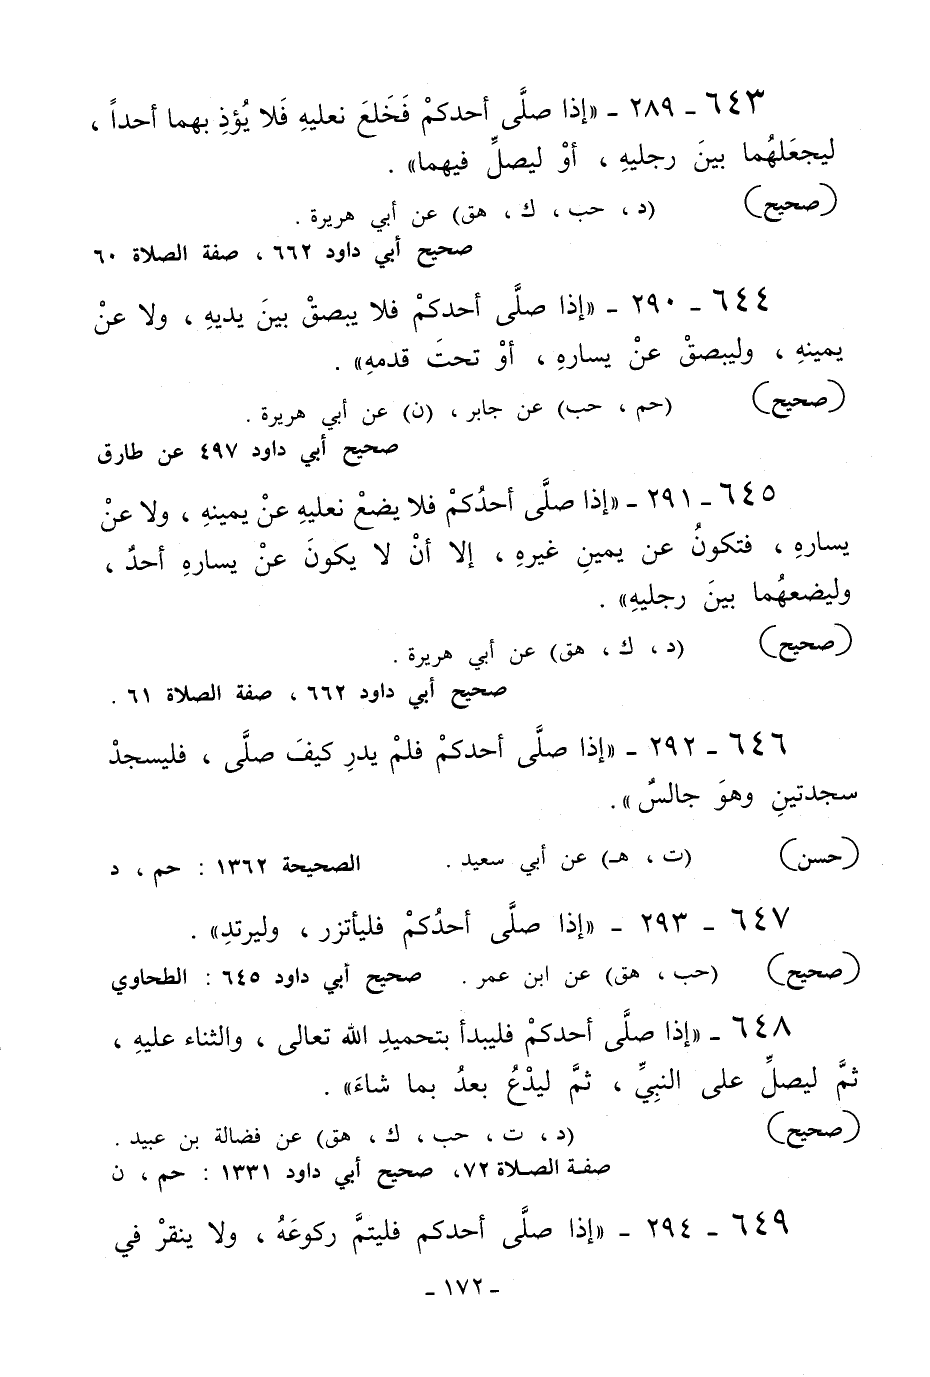 ٦٤٣ ـ ٢٨٩ ـ «إذا صلَّى أحدكمْ فَخَلعَ نعليهِ فَلا يُؤذِ بهما أحداً ،
ليجعَلهُما بينَ رجليهِ ، أوْ ليصلِّ فيهما» .
(صحيح) (د ، حب ، ك ، هق) عن أبي هريرة .
صحيح أبي داود ٦٦٢ ، صفة الصلاة ٦٠
٦٤٤ ـ ٢٩٠ ـ «إذا صلَّى أحدكمْ فلا يبصقْ بينَ يديهِ ، ولا عنْ
يمينهِ ، وليبصقْ عنْ يسارهِ ، أوْ تحتَ قدمهِ» .
(صحيح) (حم ، حب) عن جابر ، (ن) عن أبي هريرة .
صحيح أبي داود ٤٩٧ عن طارق
٦٤٥ ـ ٢٩١ ـ «إذا صلَّى أحدُكمْ فلا يضعْ نعليهِ عنْ يمينهِ ، ولا عنْ
يسارهِ ، فتكونُ عن يمينِ غيرهِ ، إلا أنْ لا يكونَ عنْ يسارهِ أحدٌ ،
وليضعهُما بينَ رجليهِ» .
(صحيح) (د ، ك ، هق) عن أبي هريرة .
صحيح أبي داود ٦٦٢ ، صفة الصلاة ٦١ .
٦٤٦ ـ ٢٩٢ ـ «إذا صلَّى أحدكمْ فلمْ يدرِ كيفَ صلَّى ، فليسجدْ
سجدتينِ وهوَ جالسٌ» .
(حسن) (ت ، هـ) عن أبي سعيد . الصحيحة ١٣٦٢ : حم ، د
٦٤٧ ـ ٢٩٣ ـ «إذا صلَّى أحدُكمْ فليأتزر ، وليرتدِ» .
(صحيح) (حب ، هق) عن ابن عمر . صحيح أبي داود ٦٤٥ : الطحاوي
٦٤٨ ـ «إذا صلَّى أحدكمْ فليبدأ بتحميدِ الله تعالى ، والثناء عليهِ ،
ثمَّ ليصلِّ على النبِيِّ ، ثمَّ ليدْعُ بعدُ بما شاءَ» .
(صحيح) (د ، ت ، حب ، ك ، هق) عن فضالة بن عبيد .
صفة الصلاة ٧٢، صحيح أبي داود ١٣٣١ : حم ، ن
٦٤٩ ـ ٢٩٤ ـ «إذا صلَّى أحدكم فليتمَّ ركوعَهُ ، ولا ينقرْ في
ـ ١٧٢ ـ